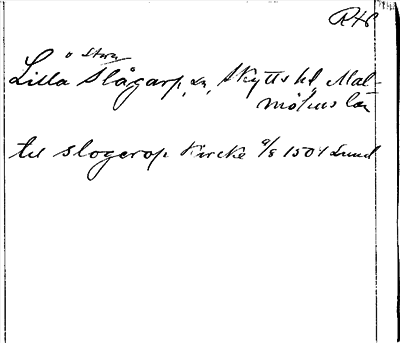 R46
o Stora
Lilla Slågarp, sn, Skytts hd, Mal-
möhus län
till slogerop Kircke 9/8 1504 Lund